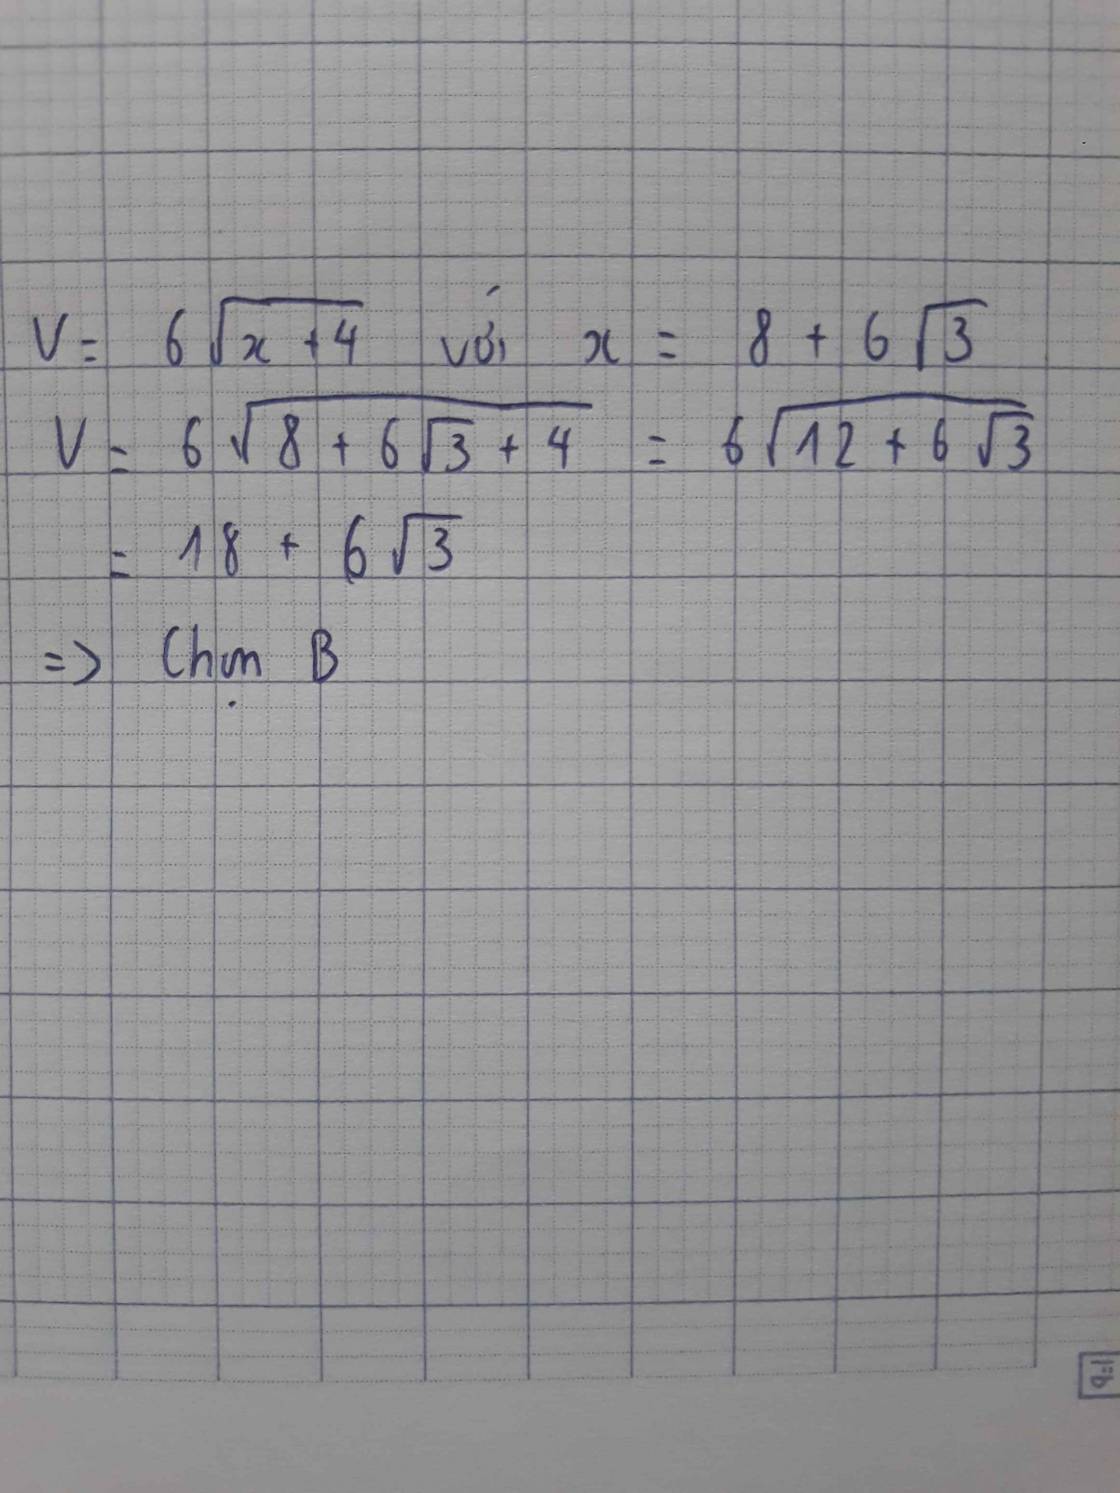 V = 6√(x + 4) với x = 8 + 6√3
V = 6√(8 + 6√3 + 4) = 6√(12 + 6√3)
= 18 + 6√3
=> Chọn B